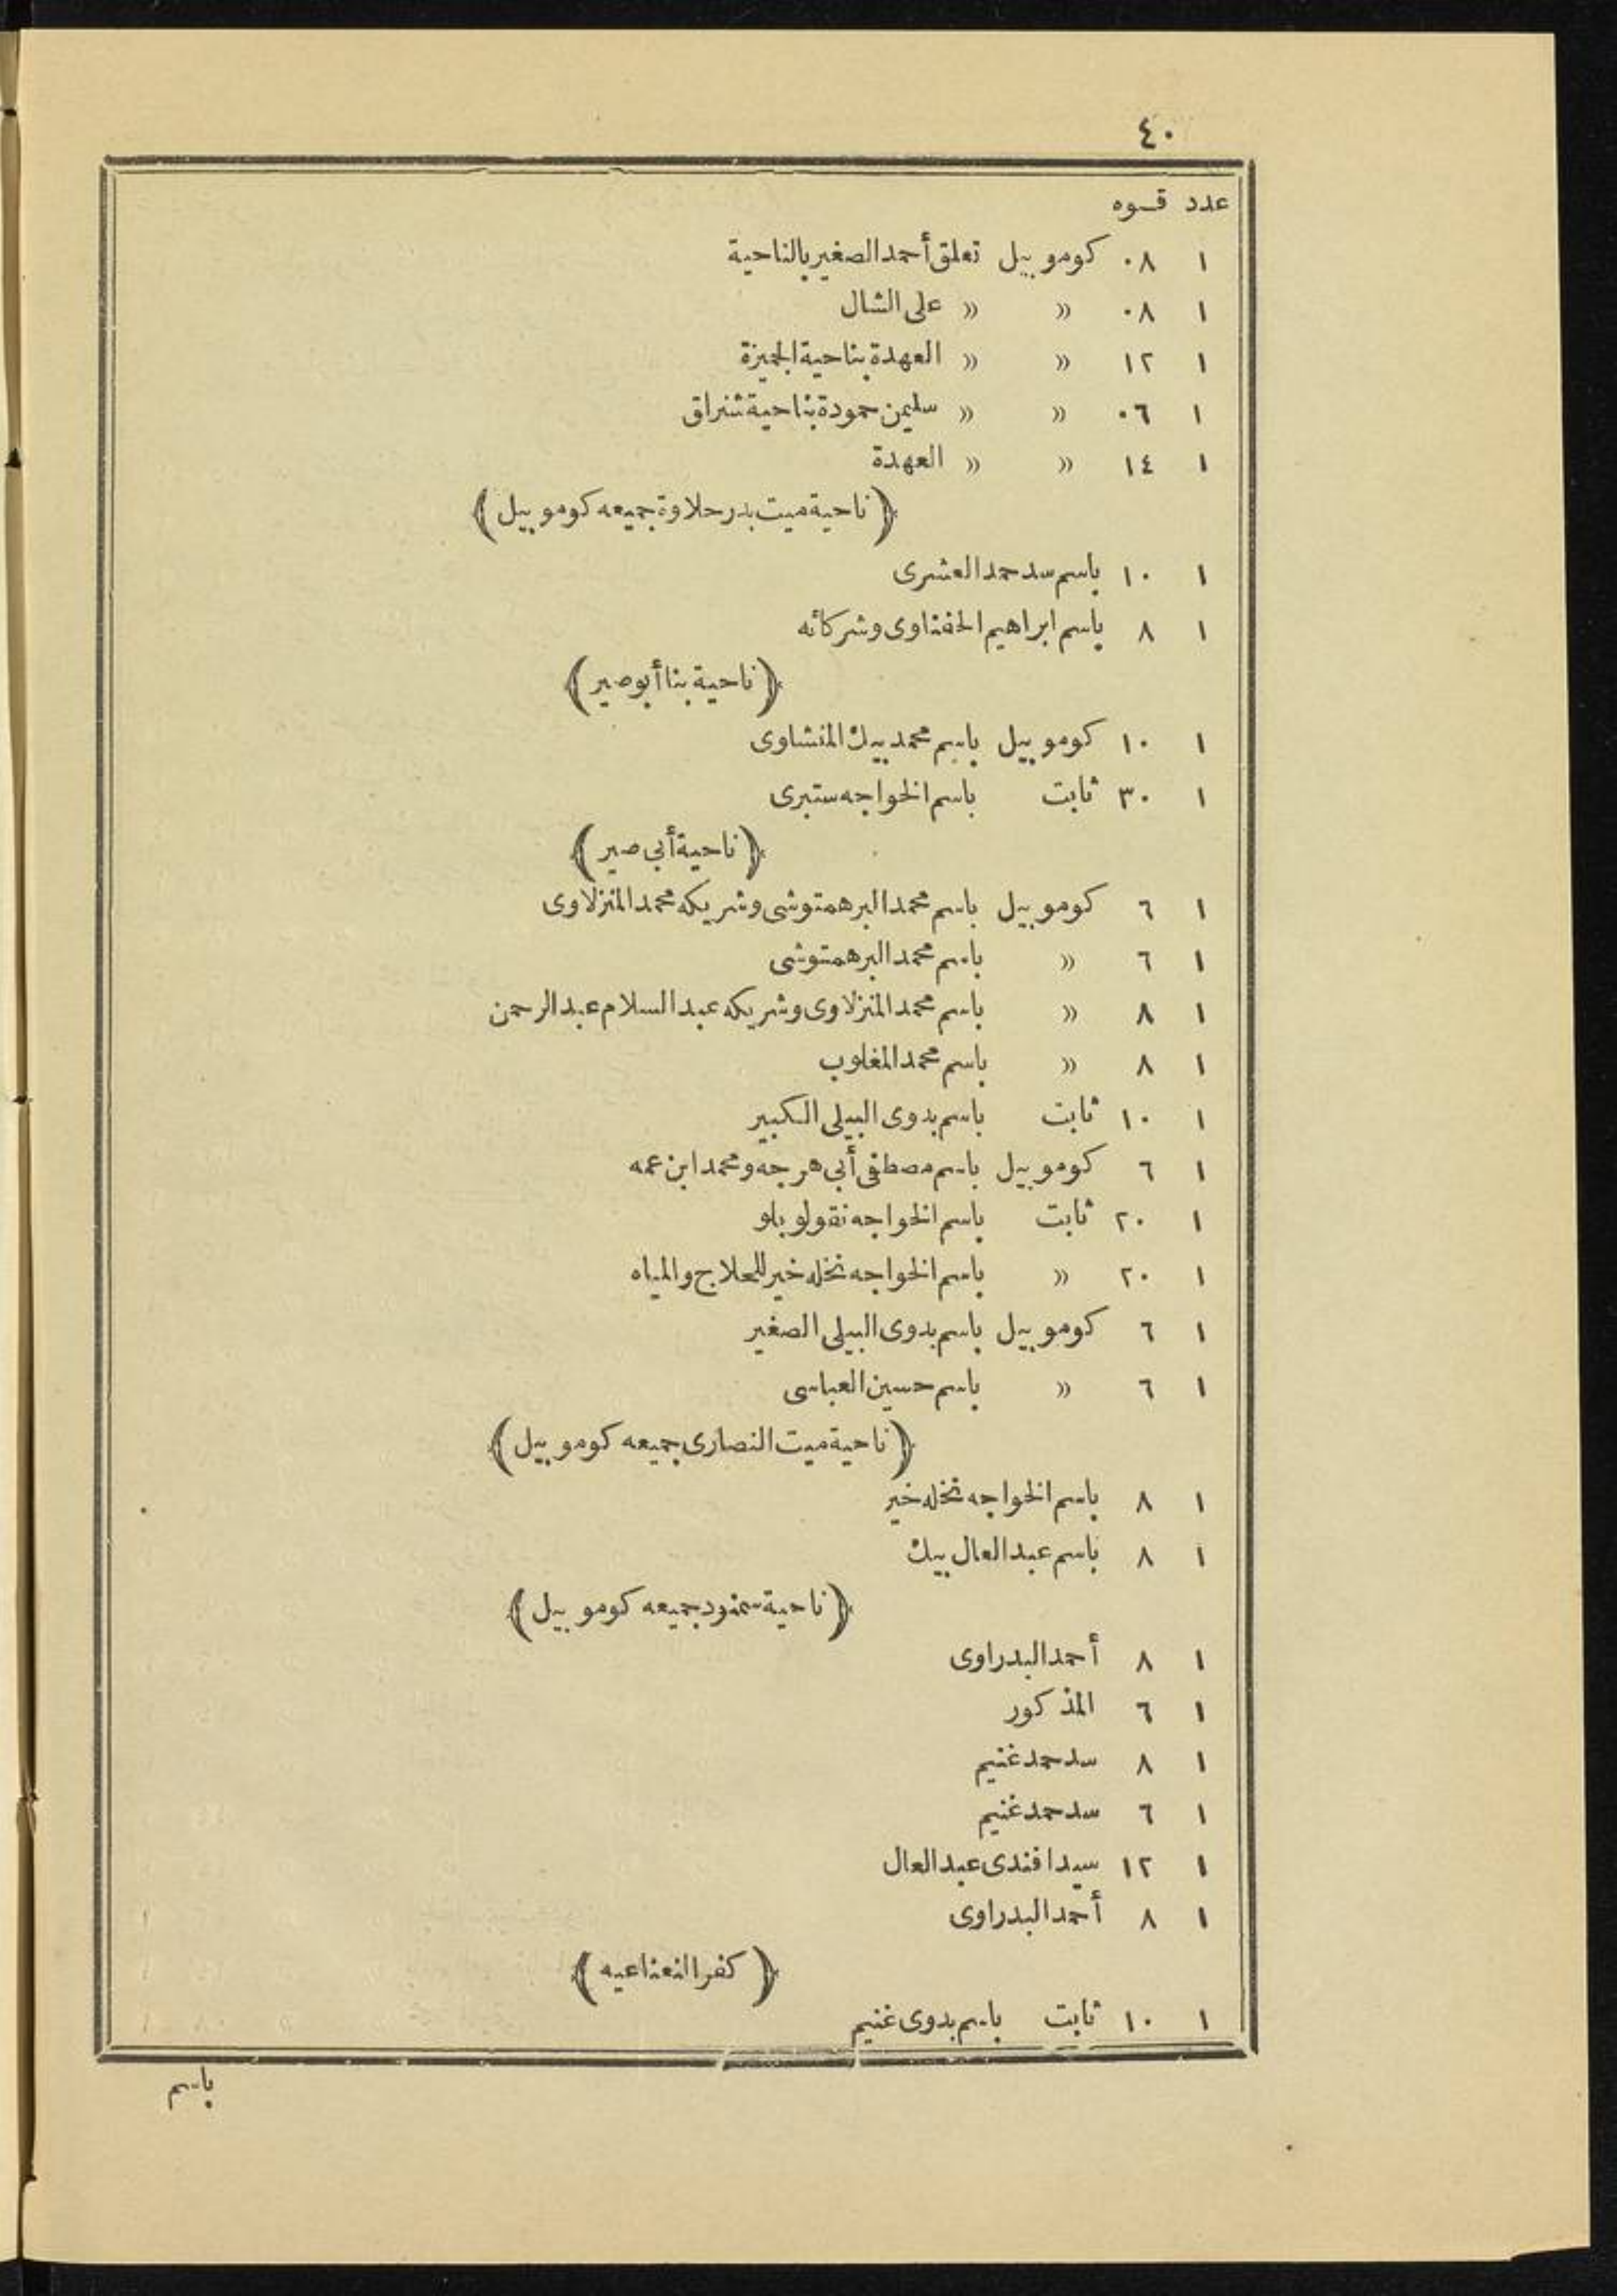 ٤٠
عدد قوه
١ ٠٨ كوموبيل تعلق أحمد الصغير بالناحية
١ ٠٨ » » على الشال
١ ١٢ » » العهدة بناحية الجميزة
١ ٠٦ » » سليمن حمودة بناحية شنراق
١ ١٤ » » العهدة
﴿ناحية ميت بدر حلاوة جميعه كوموبيل﴾
١ ١٠ باسم سدحمد العشرى
١ ٨ باسم ابراهيم الحفناوى وشركائه
﴿ناحية بنا أبو صير﴾
١ ١٠ كوموبيل باسم محمد بيك المنشاوى
١ ٣٠ ثابت باسم الخواجه ستبرى
﴿ناحية أبى صير﴾
١ ٦ كوموبيل باسم محمد البرهمتوشى وشريكه محمد المنزلاوى
١ ٦ » باسم محمد البرهمتوشى
١ ٨ » باسم محمد المنزلاوى وشريكه عبد السلام عبد الرحمن
١ ٨ » باسم محمد المغلوب
١ ١٠ ثابت باسم بدوى البيلى الكبير
١ ٦ كوموبيل باسم مصطفى أبى هرجه ومحمد ابن عمه
١ ٢٠ ثابت باسم الخواجه نقولو باو
١ ٢٠ » باسم الخواجه نخله خير للحلاج والمياه
١ ٦ كوموبيل باسم بدوى البيلى الصغير
١ ٦ » باسم حسين العباسى
﴿ناحية ميت النصارى جميعه كوموبيل﴾
١ ٨ باسم الخواجه نخله خير
١ ٨ باسم عبد العال بيك
﴿ناحية سمنود جميعه كوموبيل﴾
١ ٨ أحمد البدراوى
١ ٦ المذكور
١ ٨ سدحمد غنيم
١ ٦ سدحمد غنيم
١ ١٢ سيد افندى عبد العال
١ ٨ أحمد البدراوى
﴿كفر النعناعيه﴾
١ ١٠ ثابت باسم بدوى غنيم
باسم